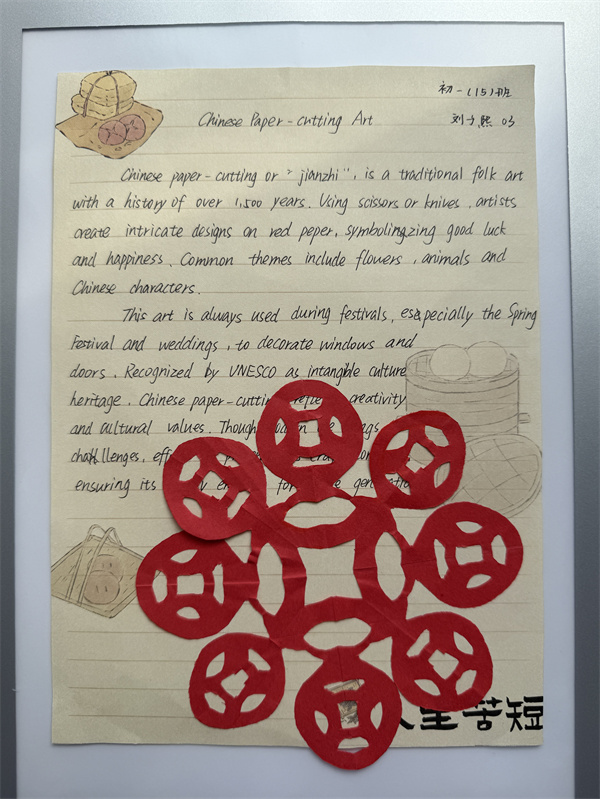 初一(15)班
Chinese Paper-cutting Art
刘子熙 03
Chinese paper-cutting or "jianzhi", is a traditional folk art
with a history of over 1,500 years. Using scissors or knives, artists
create intricate designs on red peper, symbolingzing good luck
and happiness. Common themes include flowers, animals and
Chinese characters.
This art is always used during festivals, especially the Spring
Festival and weddings, to decorate windows and
doors. Recognized by UNESCO as intangible culture
heritage, Chinese paper-cutting creativity
and cultural values. Though
challlenges,
ensuring its for
里苦短